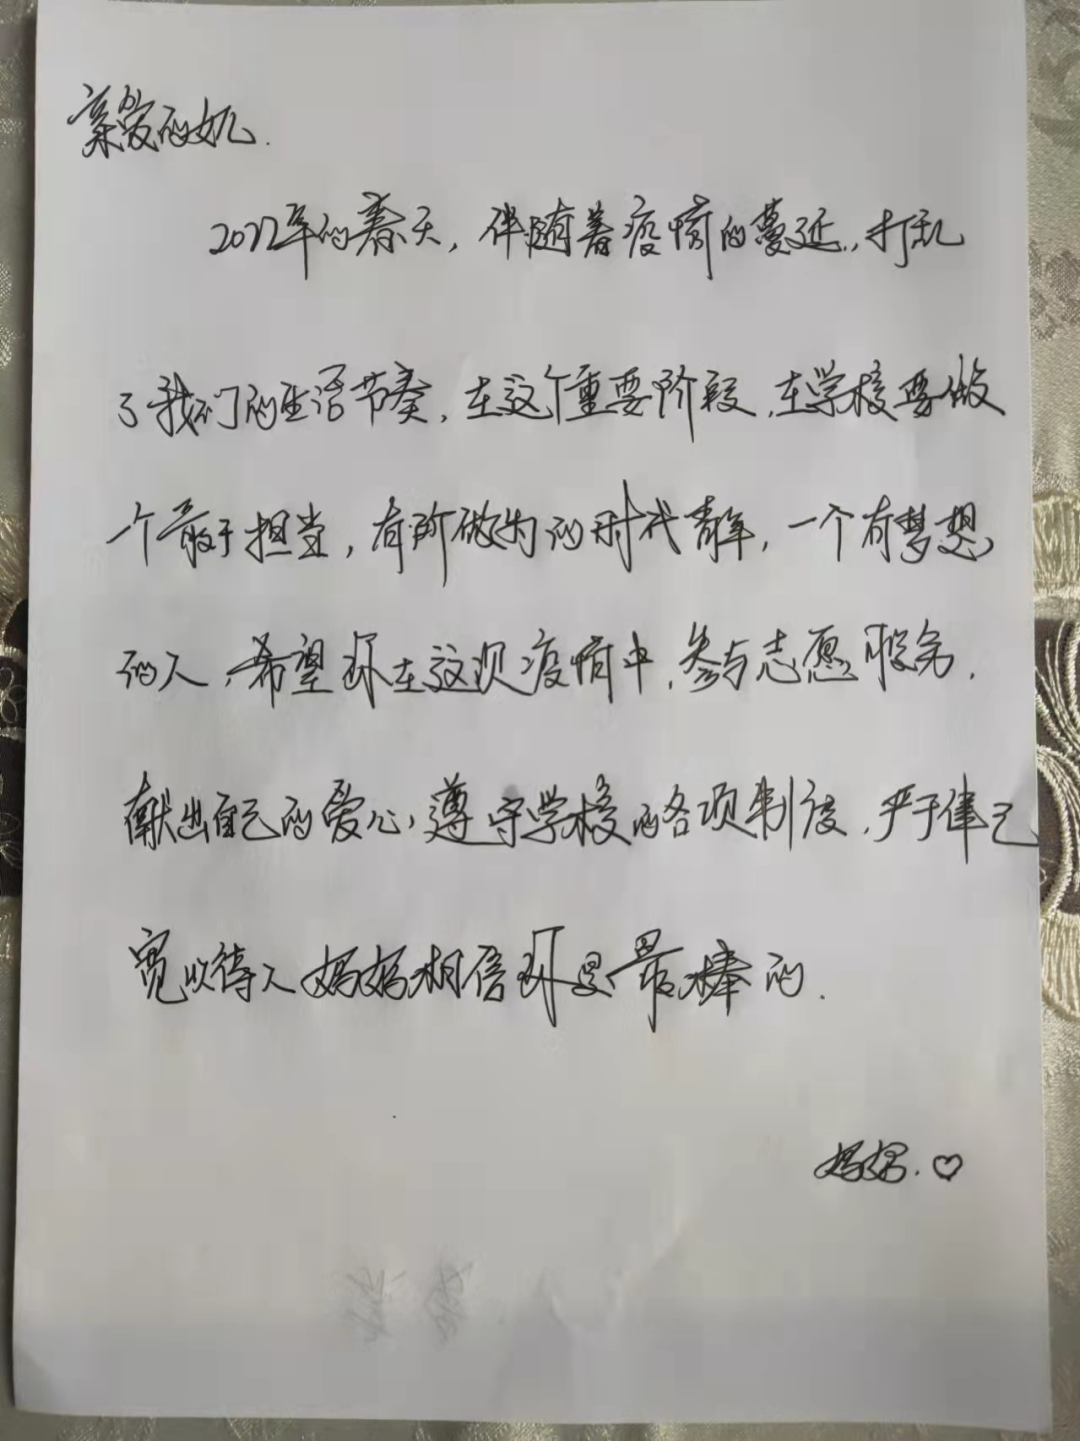 亲爱的女儿.
2022年的春天，伴随着疫情的蔓延，打乱
了我们的生活节奏，在这个重要阶段，在学校要做
个敢于担当，有所做为的时代青年，一个有梦想
的人，希望你在这次疫情中，参与志愿服务，
献出自己的爱心，遵守学校的各项制度，严于律己
宽以待人妈妈相信你是最棒的.
妈妈.♡